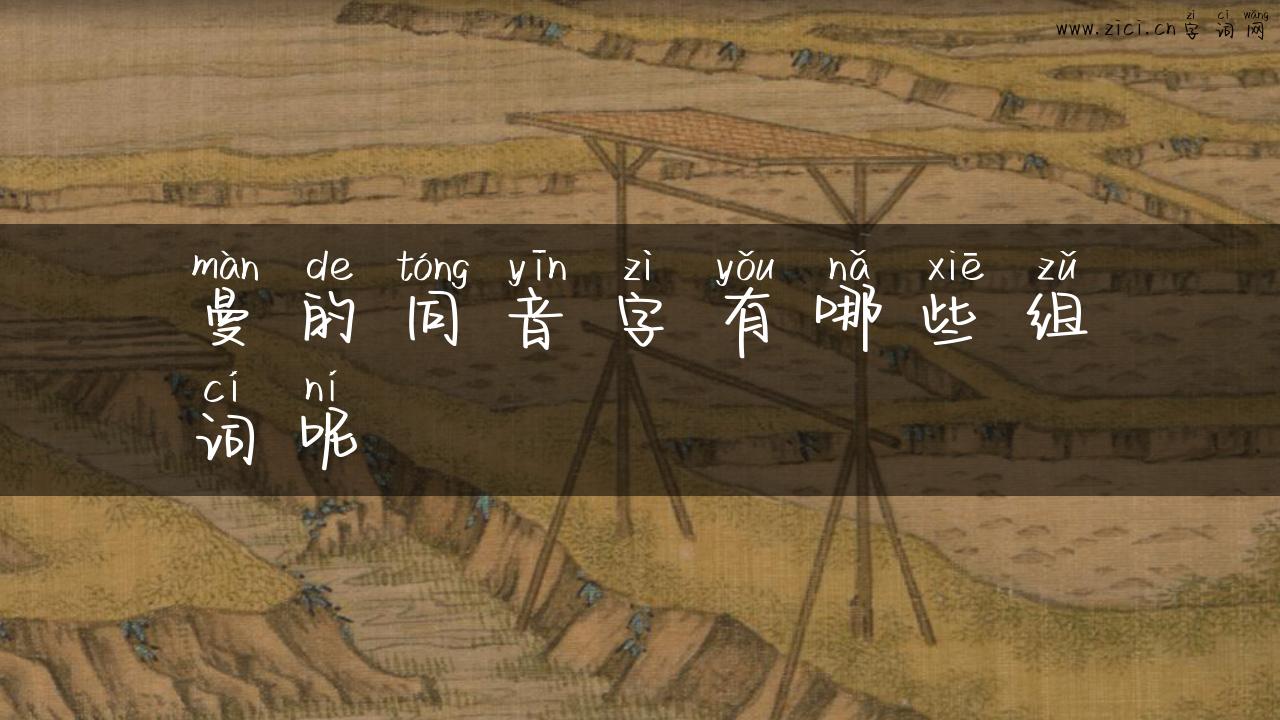 zì cí wǎng
www.zici.cn 字 词 网
màn de tóng yīn zì yǒu nǎ xiē zǔ
曼 的 同 音 字 有 哪 些 组
cí ní
词 呢